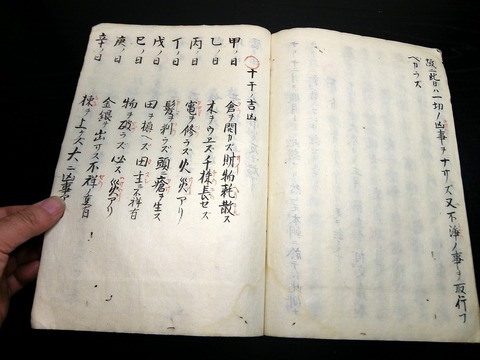 故ニ此日ハ一切ノ凶事ヲナサズ又不浄ノ事ヲ取行フ
ベカラズ
十干ノ吉凶
甲ノ日 倉ヲ開カズ財物耗散ス
乙ノ日 木ヲウエズ千株長セズ
丙ノ日 竈ヲ修ラズ火災アリ
丁ノ日 髪ヲ剃ラズ頭ニ瘡ヲ生ス
戊ノ日 田ヲ種ヘズ田主ニ不祥有
巳ノ日 物ヲ破ラズ必ス災アリ
庚ノ日 金銀ヲ出サズ不祥ノ事有
辛ノ日 棟ヲ上ケズ大ニ凶事ア